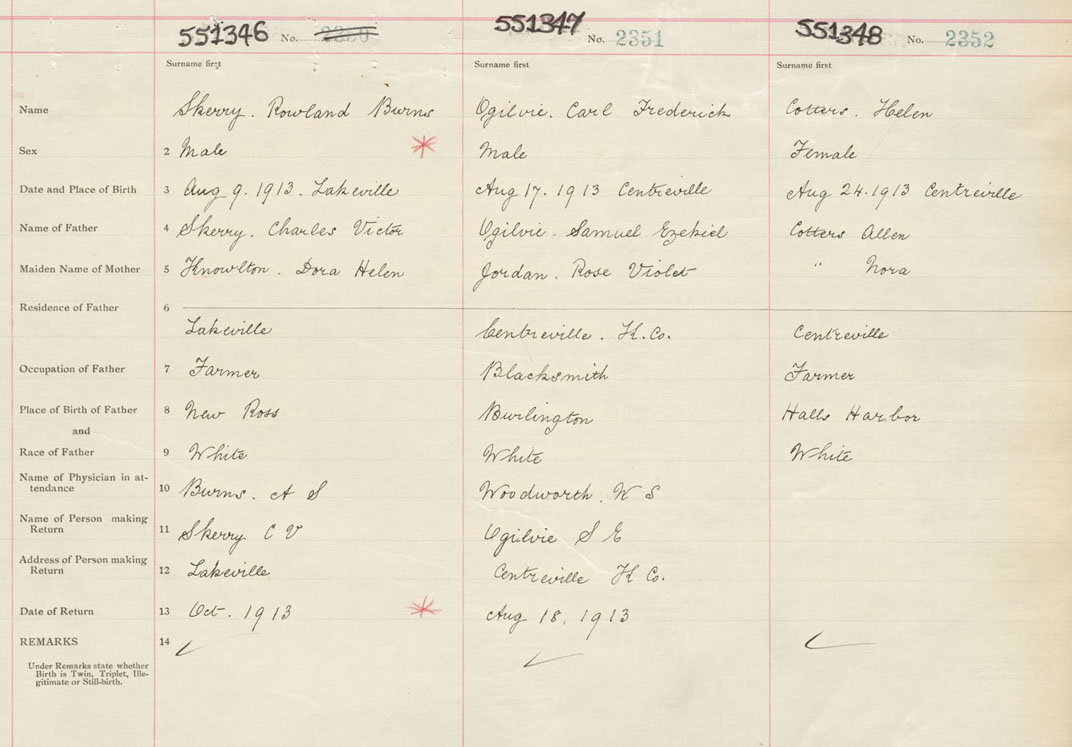 551346 No. 551347 No. 2351 551348 No. 2352
Surname first Surname first Surname first
Name Skerry. Rowland Burns Ogilvie. Carl Frederick Cotters. Helen
Sex 2 Male Male Female
Date and Place of Birth 3 Aug 9. 1913. Lakeville Aug 17. 1913 Centreville Aug 24. 1913 Centreville
Name of Father 4 Skerry. Charles Victor Ogilvie. Samuel Ezekiel Cotters Allen
Maiden Name of Mother 5 Knowlton. Dora Helen Jordan. Rose Violet " Nora
Residence of Father 6
Lakeville Centreville. K. Co. Centreville
Occupation of Father 7 Farmer Blacksmith Farmer
Place of Birth of Father 8 New Ross Burlington Halls Harbor
and
Race of Father 9 White White White
Name of Physician in at-
tendance 10 Burns. A S Woodworth. W S
Name of Person making
Return 11 Skerry C V Ogilvie S E
Address of Person making
Return 12 Lakeville Centreville K Co.
Date of Return 13 Oct. 1913 Aug 18, 1913
REMARKS 14
Under Remarks state whether
Birth is Twin, Triplet, Ille-
gitimate or Still-birth.